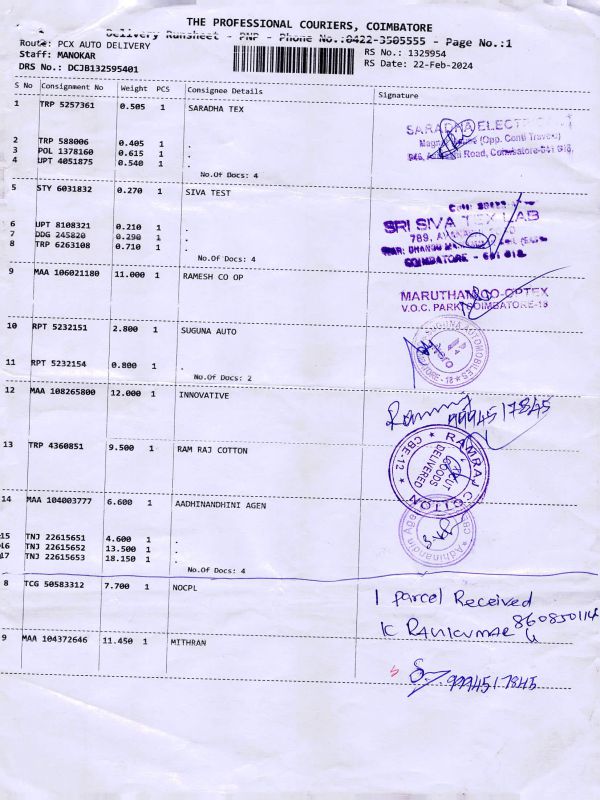 THE PROFESSIONAL COURIERS, COIMBATORE
Delivery Runsheet - PNP - Phone No.:0422-3505555 - Page No.:1
Route: PCX AUTO DELIVERY
RS No.: 1325954
Staff: MANOKAR
RS Date: 22-Feb-2024
DRS No.: DCJB132595401
S No Consignment No Weight PCS Consignee Details Signature
1 TRP 5257361 0.505 1 SARADHA TEX
SARADHA
(Opp. Conti Travels)
Road, Coimbatore-641 018.
2 TRP 588006 0.405 1 .
3 POL 1378160 0.615 1 .
4 UPT 4051875 0.540 1 .
No.Of Docs: 4
5 STY 6031832 0.270 1 SIVA TEST
SRI SIVA TEX LAB
789,
COIMBATORE - 641 018.
6 UPT 8108321 0.210 1 .
7 DDG 245820 0.290 1 .
8 TRP 6263108 0.710 1 .
No.Of Docs: 4
9 MAA 106021180 11.000 1 RAMESH CO OP
MARUTHAM CO-OPTEX
V.O.C. PARK, COIMBATORE-18
10 RPT 5232151 2.800 1 SUGUNA AUTO
SUGUNA AUTOMOBILES
11 RPT 5232154 0.800 1 .
No.Of Docs: 2
12 MAA 108265800 12.000 1 INNOVATIVE
9994517845
13 TRP 4360851 9.500 1 RAM RAJ COTTON
RAMRAJ COTTON
CBE-12
GOODS
DELIVERED
14 MAA 104003777 6.600 1 AADHINANDHINI AGEN
15 TNJ 22615651 4.600 1 .
16 TNJ 22615652 13.500 1 .
17 TNJ 22615653 18.150 1 .
No.Of Docs: 4
8 TCG 50583312 7.700 1 NOCPL
1 parcel Received
K RAVIKUMAR
9 MAA 104372646 11.450 1 MITHRAN
9994517845